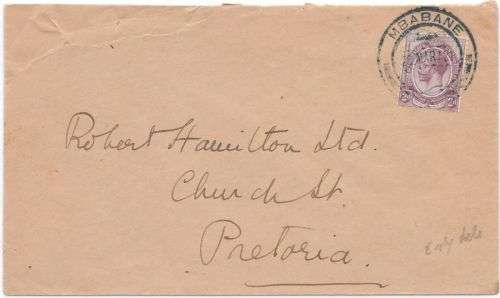 MBABANE
Robert Hamilton Ltd.
Church St.
Pretoria.